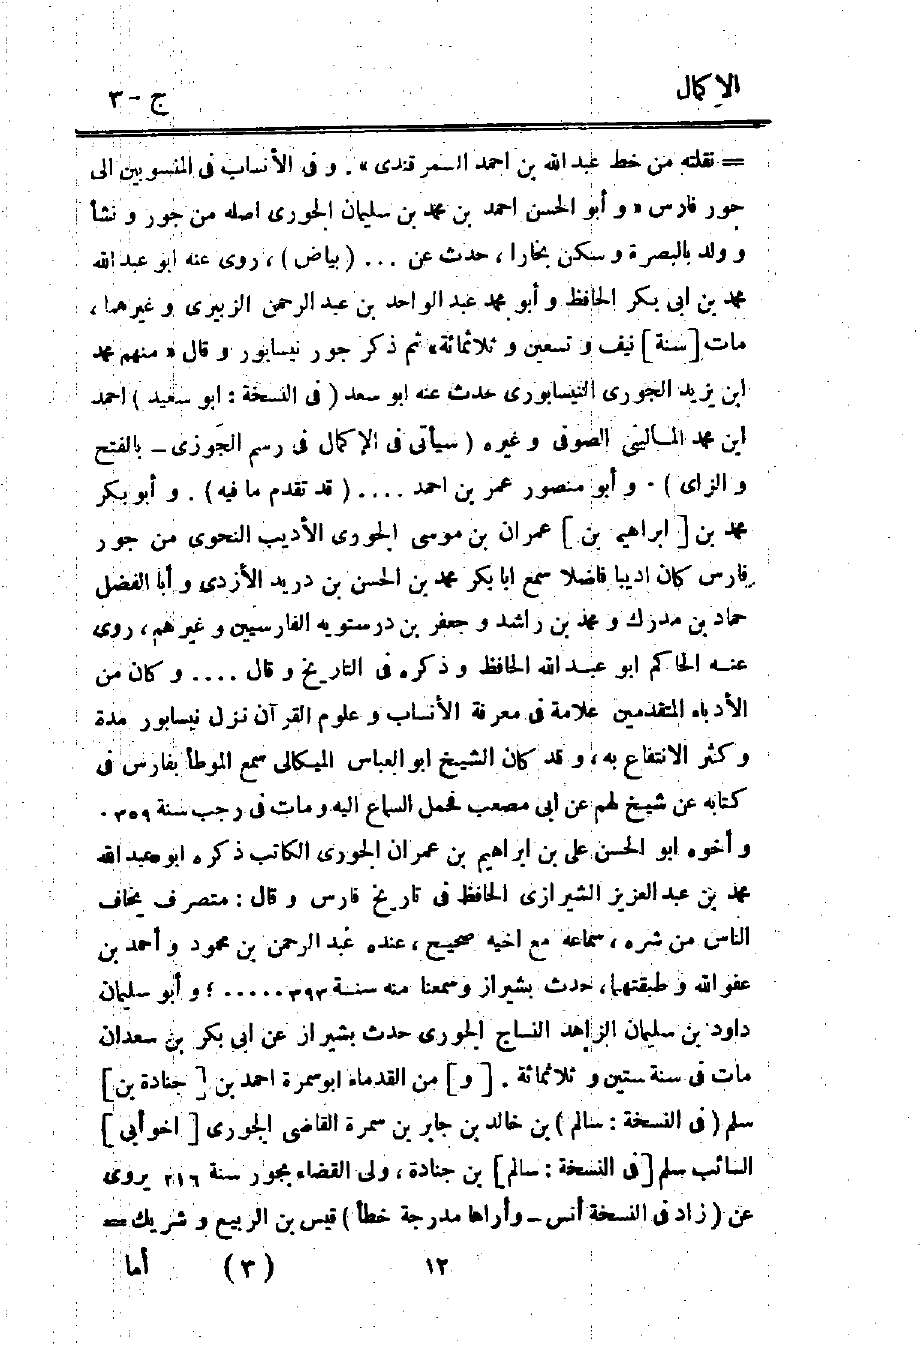 الإكمال ج - ٣
= نقلته من خط عبد الله بن احمد السمرقندى» . و فى الأنساب فى المنسوبين الى
جور فارس « و أبو الحسن احمد بن محمد بن سليمان الجورى اصله من جور و نشأ
و ولد بالبصرة و سكن بخارا ، حدث عن ... ( بياض ) ، روى عنه ابو عبد الله
محمد بن ابى بكر الحافظ و أبو محمد عبد الواحد بن عبد الرحمن الزبيرى و غيرهما ،
مات [ سنة ] نيف و تسعين و ثلاثمائة» ثم ذكر جور نيسابور و قال « منهم محمد
ابن يزيد الجورى النيسابورى حدث عنه ابو سعد ( فى النسخة : ابو سعيد ) احمد
ابن محمد المالينى الصوفى و غيره ( سيأتى فى الإكمال فى رسم الجوزى - بالفتح
و الزاى ) . و أبو منصور عمر بن احمد .... ( قد تقدم ما فيه ) . و أبو بكر
محمد بن [ ابراهيم بن ] عمران بن موسى الجورى الأديب النحوى من جور
فارس كان اديبا فاضلا سمع ابا بكر محمد بن الحسن بن دريد الأزدى و أبا الفضل
حماد بن مدرك و محمد بن راشد و جعفر بن درستويه الفارسيين و غيرهم ، روى
عنه الحاكم ابو عبد الله الحافظ و ذكره فى التاريخ و قال .... و كان من
الأدباء المتقدمين علامة فى معرفة الأنساب و علوم القرآن نزل نيسابور مدة
و كثر الانتفاع به ، و قد كان الشيخ ابو العباس الميكالى سمع الموطأ بفارس فى
كتابه عن شيخ لهم عن ابى مصعب فحمل السماع اليه و مات فى رجب سنة ٣٥٩ .
و أخوه ابو الحسن على بن ابراهيم بن عمران الجورى الكاتب ذكره ابو عبد الله
محمد بن عبد العزيز الشيرازى الحافظ فى تاريخ فارس و قال : متصرف يخاف
الناس من شره ، سماعه مع اخيه صحيح ، عنده عبد الرحمن بن محمود و أحمد بن
عفو الله و طبقتهما ، حدث بشيراز وسمعنا منه سنة ٣٩٣ ..... ؛ و أبو سليمان
داود بن سليمان الزاهد النساج الجورى حدث بشيراز عن ابى بكر بن سعدان
مات فى سنة ستين و ثلاثمائة . [ و ] من القدماء ابو سمرة احمد بن [ جنادة بن ]
سلم ( فى النسخة : سالم ) بن خالد بن جابر بن سمرة القاضى الجورى [ اخو أبى ]
السائب سلم [ فى النسخة : سالم ] بن جنادة ، ولى القضاء بجور سنة ٢١٦ يروى
عن ( زاد فى النسخة أنس - وأراها مدرجة خطأ ) قيس بن الربيع و شريك =
١٢ (٣) أما